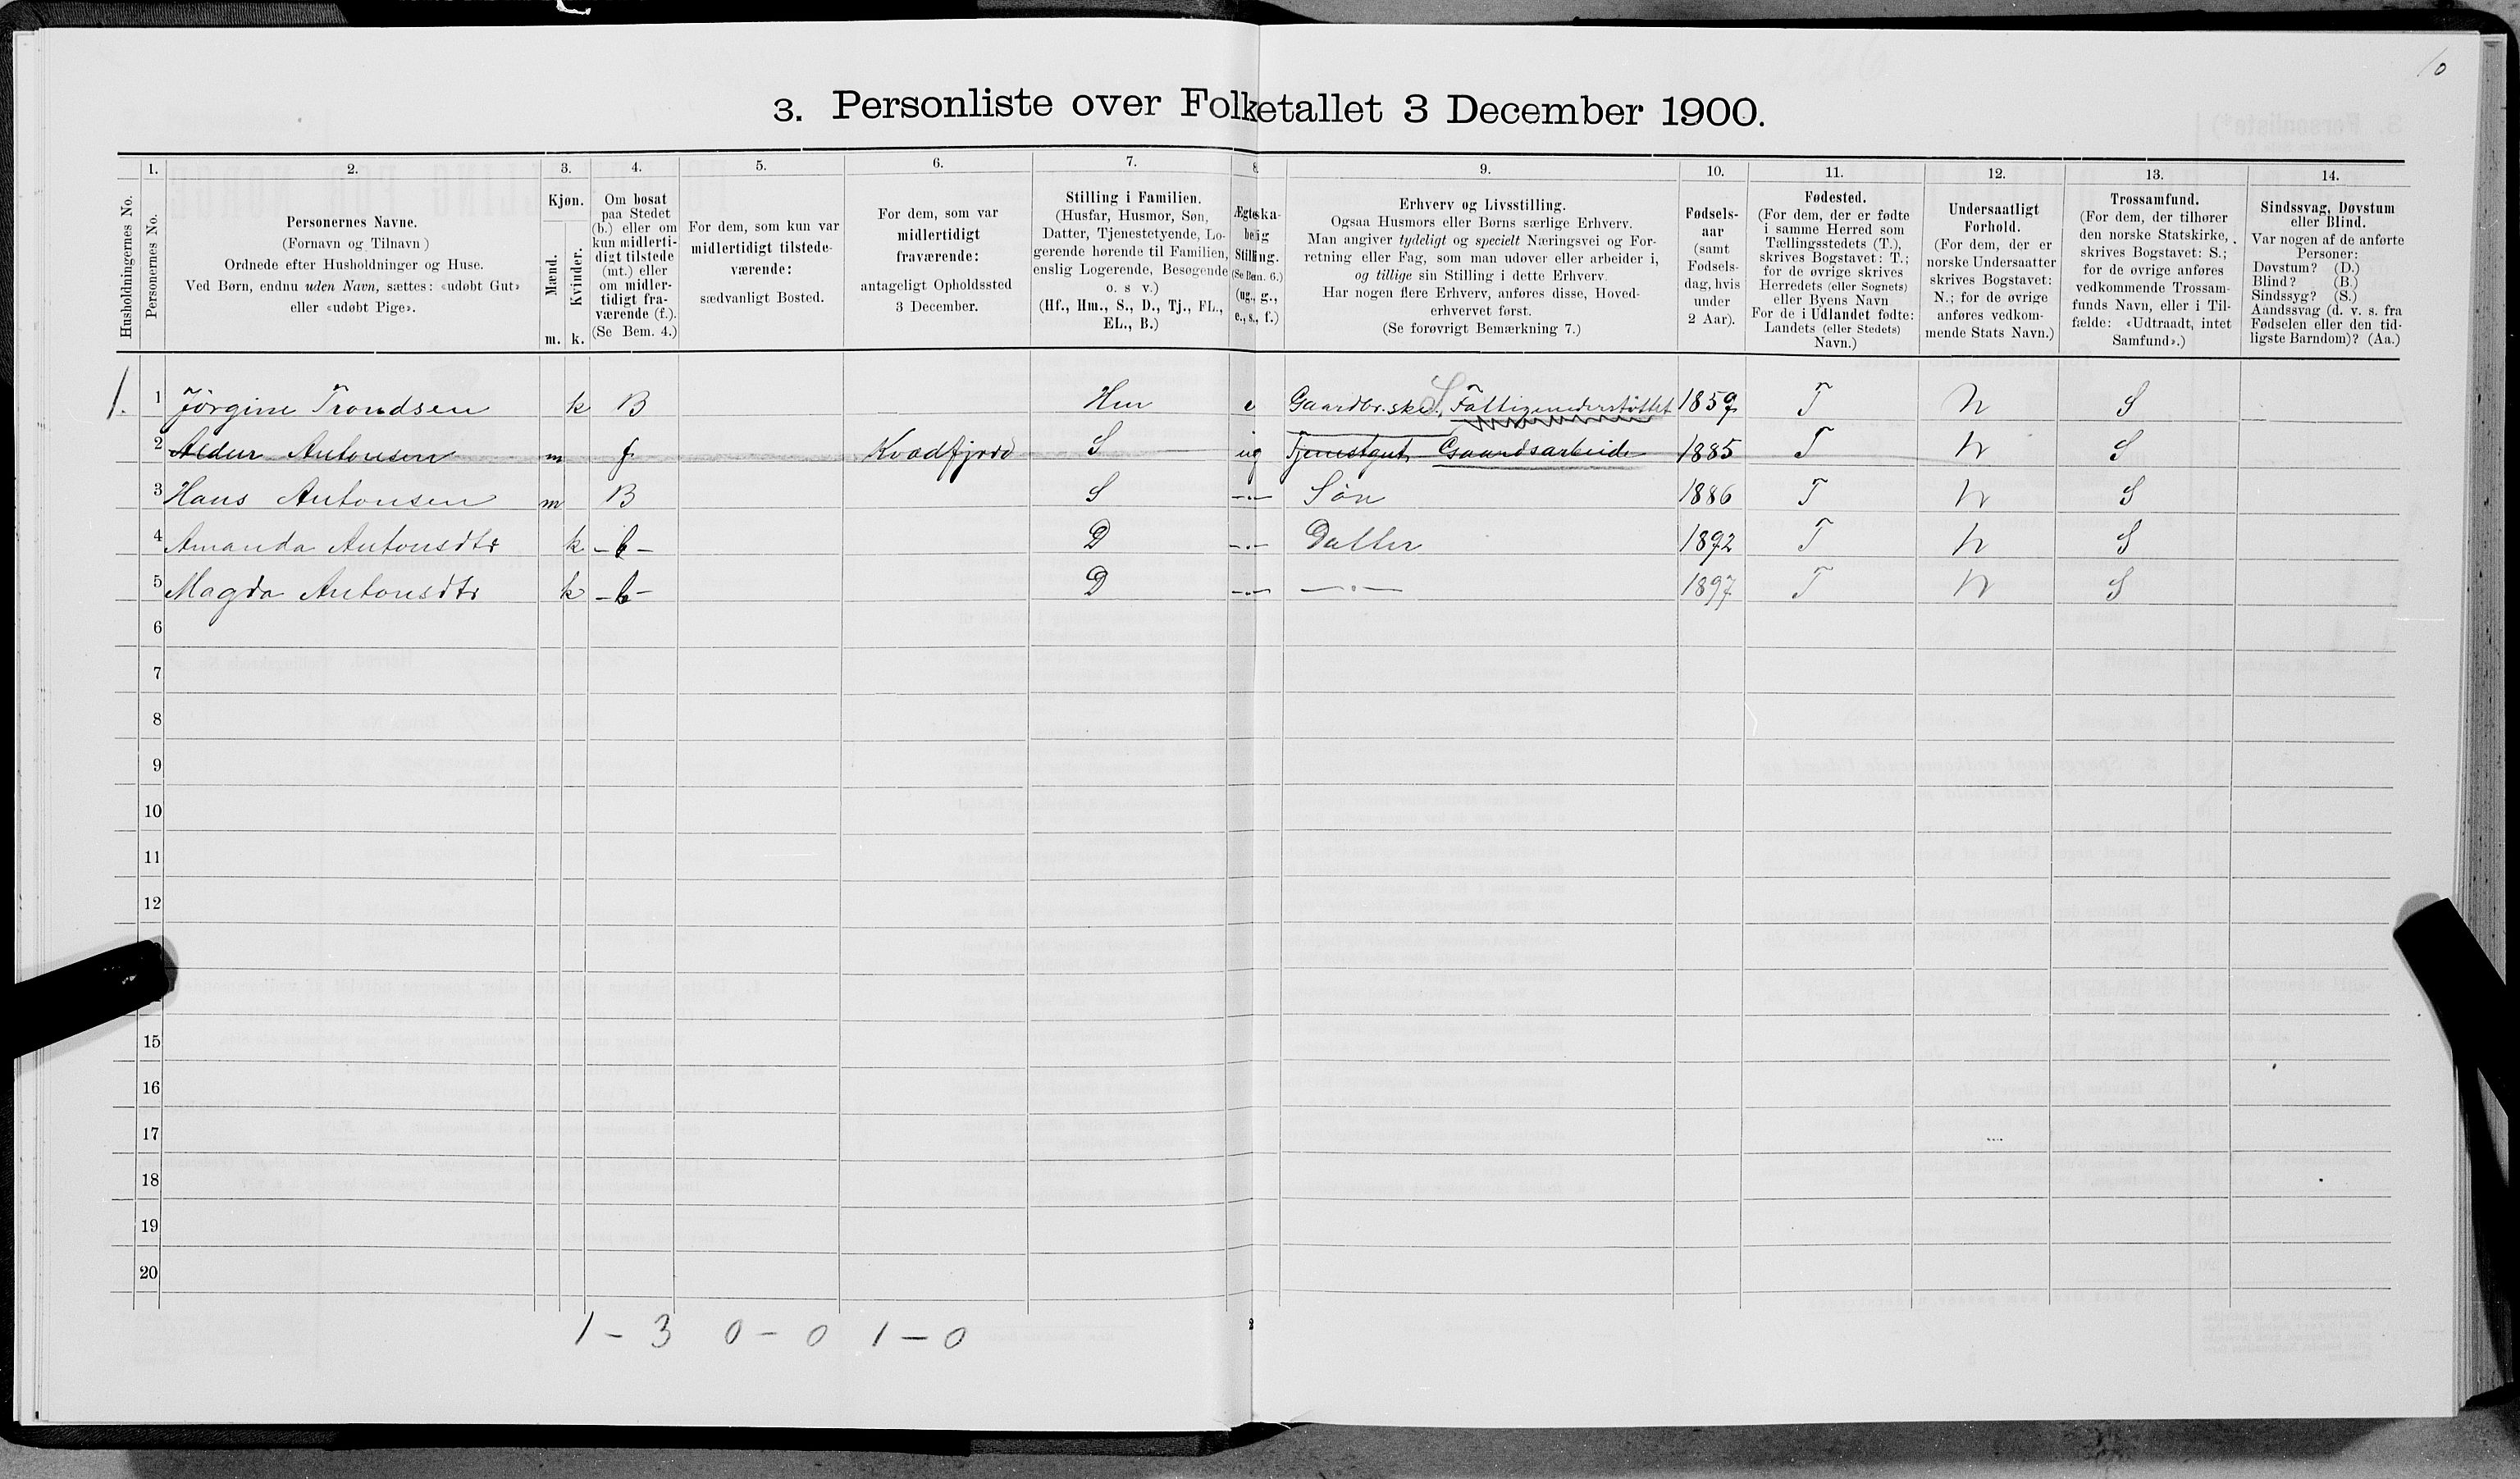 10
3. Personliste over Folketallet 3 December 1900.
Husholdningernes No.
1.
Personernes No.
2.
Personernes Navne.
(Fornavn og Tilnavn)
Ordnede efter Husholdninger og Huse.
Ved Børn, endnu uden Navn, sættes: «udøbt Gut»
eller «udøbt Pige».
3.
Kjøn.
Mænd.
Kvinder.
m. k.
4.
Om bosat
paa Stedet
(b.) eller om
kun midlerti-
digt tilstede
(mt.) eller
om midler-
tidigt fra-
værende (f.).
(Se Bem. 4.)
5.
For dem, som kun var
midlertidigt tilstede-
værende:
sædvanligt Bosted.
6.
For dem, som var
midlertidigt
fraværende:
antageligt Opholdssted
3 December.
7.
Stilling i Familien.
(Husfar, Husmor, Søn,
Datter, Tjenestetyende, Lo-
gerende hørende til Familien,
enslig Logerende, Besøgende
o. s v.)
(Hf., Hm., S., D., Tj., FL.,
EL., B.)
8
Ægteska-
belig
Stilling.
(Se Bem. 6.)
(ug., g.,
e., s., f.)
9.
Erhverv og Livsstilling.
Ogsaa Husmors eller Børns særlige Erhverv.
Man angiver tydeligt og specielt Næringsvei og For-
retning eller Fag, som man udøver eller arbeider i,
og tillige sin Stilling i dette Erhverv.
Har nogen flere Erhverv, anføres disse, Hoved-
erhvervet først.
(Se forøvrigt Bemærkning 7.)
10.
Fødsels-
aar
(samt
Fødsels-
dag, hvis
under
2 Aar).
11.
Fødested.
(For dem, der er fødte
i samme Herred som
Tællingsstedets (T.),
skrives Bogstavet: T.;
for de øvrige skrives
Herredets (eller Sognets)
eller Byens Navn
For de i Udlandet fødte:
Landets (eller Stedets)
Navn.)
12.
Undersaatligt
Forhold.
(For dem, der er
norske Undersaatter
skrives Bogstavet:
N.; for de øvrige
anføres vedkom-
mende Stats Navn.)
13.
Trossamfund.
(For dem, der tilhører
den norske Statskirke,
skrives Bogstavet: S.;
for de øvrige anføres
vedkommende Trossam-
funds Navn, eller i Til-
fælde: «Udtraadt, intet
Samfund».)
14.
Sindssvag, Døvstum
eller Blind.
Var nogen af de anførte
Personer:
Døvstum? (D.)
Blind? (B.)
Sindssyg? (S.)
Aandssvag (d. v. s. fra
Fødselen eller den tid-
ligste Barndom)? (Aa.)
1. 1 Jörgine Trondsen k B Hm e Gaardbr.ske. S Fattigunderstöttet 1859 T N S
2 Aldur Antonsen m f Kvædfjord S ug Tjenestgut Gaardsarbeide 1885 T N S
3 Hans Antonsen m B S -"- Sön 1886 T N S
4 Amanda Antonsdtr k - b - D -"- Datter 1892 T N S
5 Magda Antonsdtr k - b - D -"- -"- 1897 T N S
6
7
8
9
10
11
12
15
16
17
18
19
20
1 - 3 0 - 0 1 - 0